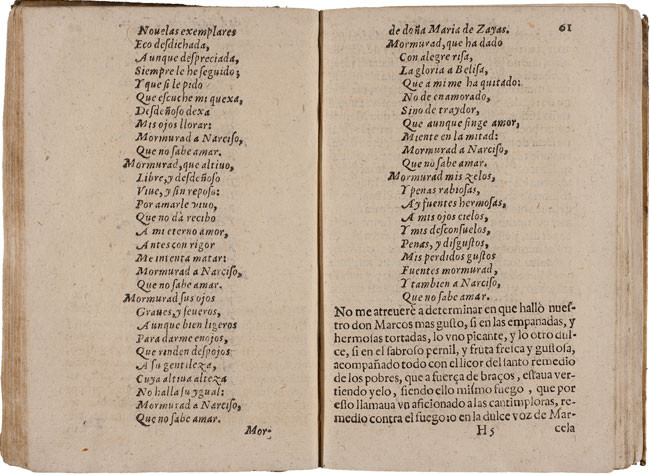 Nouelas exemplares
Eco desdichada,
Aunque despreciada,
Siempre le he seguido;
Y que si le pido
Que escuche mi quexa,
Desdeñoso dexa
Mis ojos llorar:
Mormurad a Narciso,
Que no sabe amar.
Mormurad, que altiuo,
Libre, y desdeñoso
Viue, y sin reposo:
Por amarle viuo,
Que no dà recibo
A mi eterno amor,
Antes con rigor
Me intenta matar:
Mormurad a Narciso,
Que no sabe amar.
Mormurad sus ojos
Graues, y seueros,
Aunque bien ligeros
Para darme enojos,
Que rinden despojos
A su gentileza,
Cuya altiua alteza
No halla su ygual:
Mormurad a Narciso,
Que no sabe amar.
Mor-
de doña Maria de Zayas. 61
Mormurad, que ha dado
Con alegre risa,
La gloria a Belisa,
Que a mi me ha quitado:
No de enamorado,
Sino de traydor,
Que aunque finge amor,
Miente en la mitad:
Mormurad a Narciso,
Que no sabe amar.
Mormurad mis zelos,
Y penas rabiosas,
Ay fuentes hermosas,
A mis ojos cielos,
Y mis desconsuelos,
Penas, y disgustos,
Mis perdidos gustos
Fuentes mormurad,
Y tambien a Narciso,
Que no sabe amar.
No me atreuere a determinar en que hallò nues-
tro don Marcos mas gusto, si en las empanadas, y
hermosas tortadas, lo vno picante, y lo otro dul-
ce, si en el sabroso pernil, y fruta fresca y gustosa,
acompañado todo con el licor del santo remedio
de los pobres, que a fuerça de braços, estaua ver-
tiendo yelo, siendo ello mismo fuego, que por
esto llamaua vn aficionado a las cantimploras, re-
medio contra el fuego: o en la dulce voz de Mar-
H5 cela